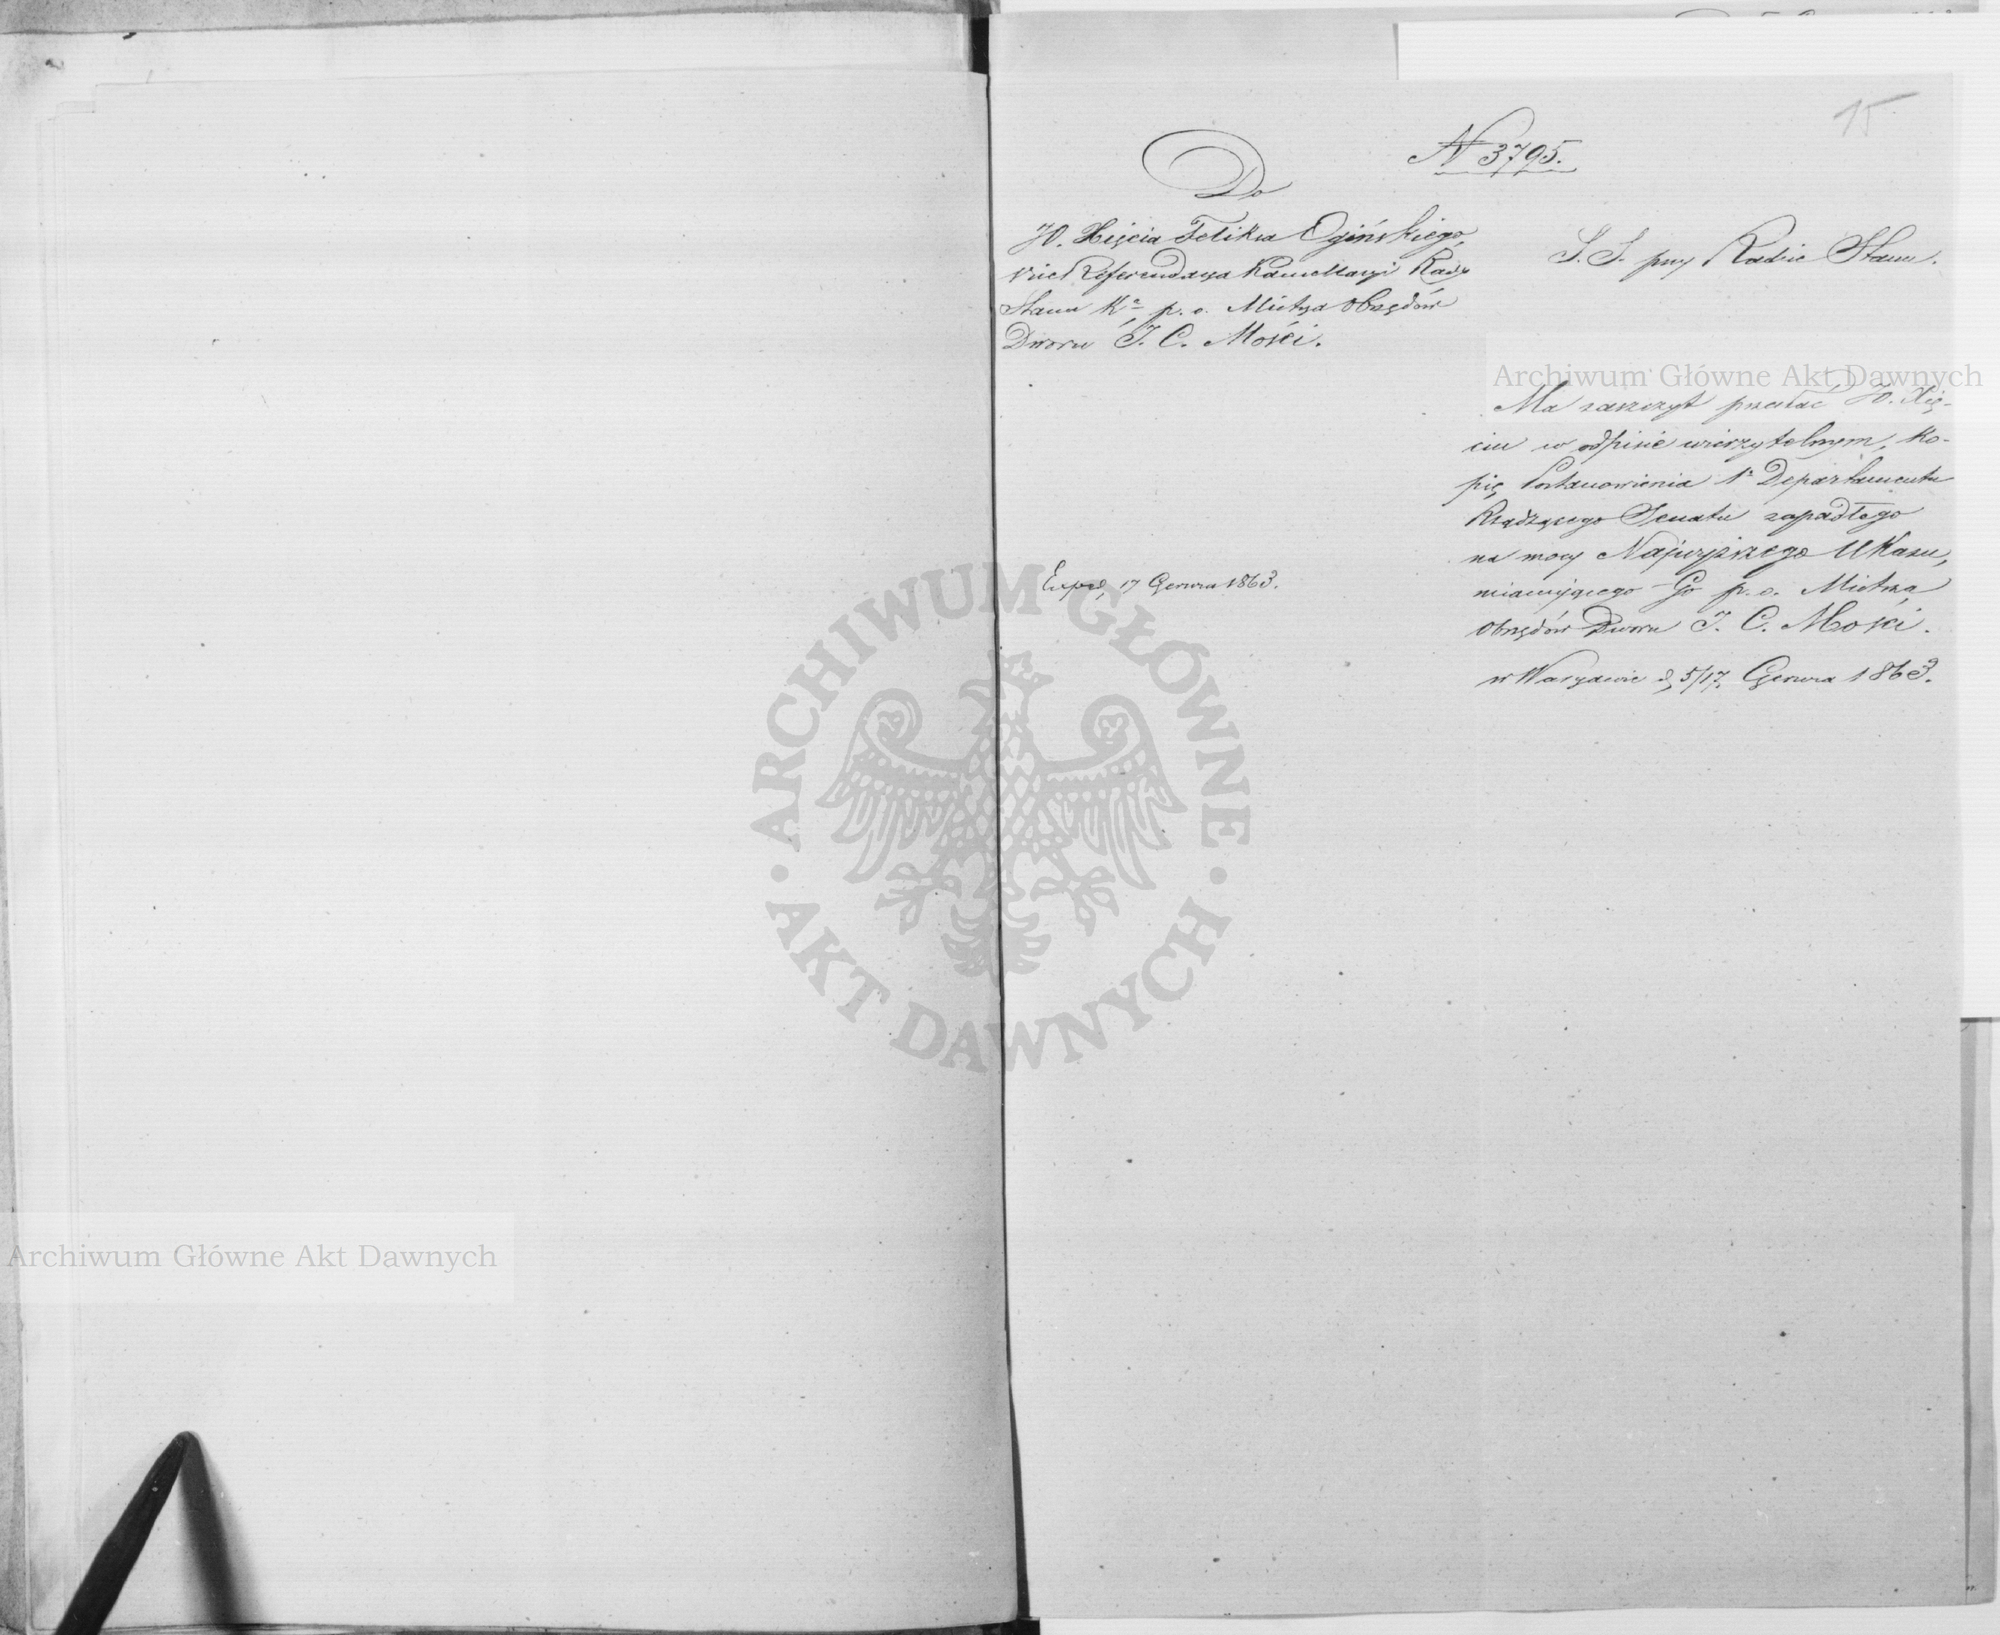 15
N 3795.
Do
JO. Xięcia Felixa Ogińskiego,
Vice Referendarza Kancellaryi Rady
Stanu Kr. p. o. Mistrza Obrzędów
Dworu J. C. Mości.
S. S. przy Radzie Stanu.
Ma zaszczyt przesłać JO. Xię-
ciu w odpisie wierzytelnym, ko-
pię Postanowienia 1° Departamentu
Rządzącego Senatu zapadłego
na mocy Najwyższego Ukazu,
mianującego Go p. o. Mistrza
Obrzędów Dworu J. C. Mości.
w Warszawie d. 5/17. Czerwca 1863.
Exped. 17 Czerwca 1863.
Archiwum Główne Akt Dawnych
ARCHIWUM GŁÓWNE
AKT DAWNYCH
Archiwum Główne Akt Dawnych